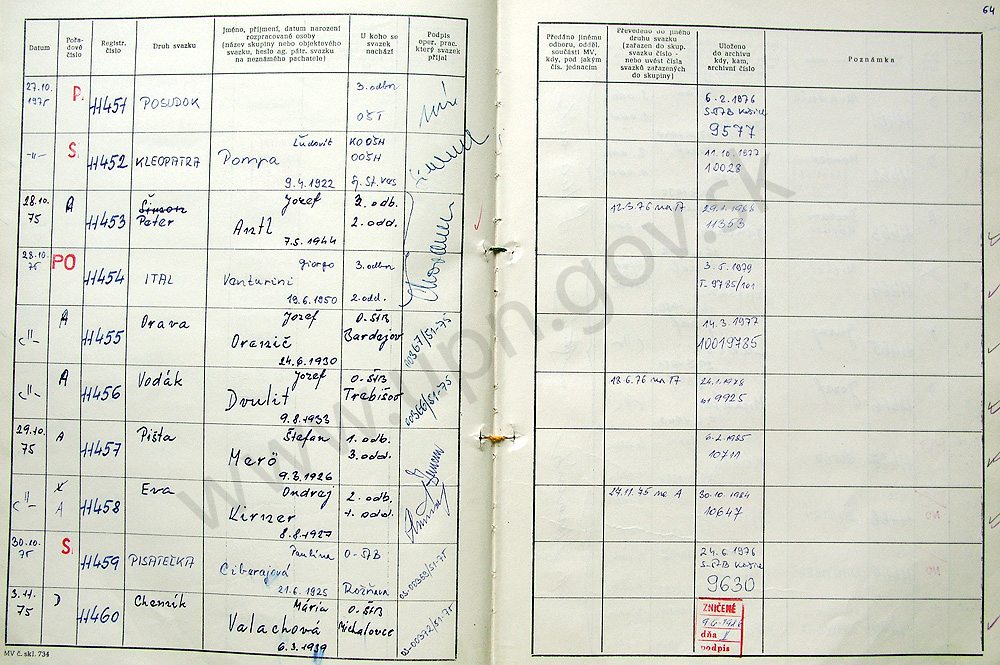 64
Datum
Pořa-
dové
číslo
Registr.
číslo
Druh svazku
Jméno, příjmení, datum narození
rozpracované osoby
(název skupiny nebo objektového
svazku, heslo ag. pátr. svazku
na neznámého pachatele)
U koho se
svazek
nachází
Podpis
oper. prac.
který svazek
přijal
Předáno jinému
odboru, odděl.
součásti MV,
kdy, pod jakým
čís. jednacím
Převedeno do jiného
druhu svazku
(zařazen do skup.
svazku číslo -
nebo uvést čísla
svazků zařazených
do skupiny)
Uloženo
do archivu
kdy, kam,
archivní číslo
Poznámka
27.10.
1975
P.
11451
POSUDOK
3. odbor
OŠT
6.2.1976
S-ŠTB Košice
9577
-"-
S.
11452
KLEOPATRA
Ľudovít
Pompa
9.4.1922
KOOŠH
OOŠH
11.10.1977
10028
28.10.
75
A
11453
Šimon
Peter
Jozef
Antl
7.5.1944
2. odb.
2. odd.
12.3.76 na IT
11353
28.10.
75
PO
11454
ITAL
Giorgo
Venturini
19.6.1950
3. odbor
2. odd.
3.5.1979
T-9785/101
-"-
A
11455
Orava
Jozef
Oranič
24.6.1930
O-ŠtB
Bardejov
00367/51-75
14.3.1977
10019785
-"-
A
11456
Vodák
Jozef
Dvulit
9.8.1933
O-ŠtB
Trebišov
00366/51-75
18.6.76 na IT
9925
29.10.
75
A
11457
Pišta
Štefan
Merö
9.2.1926
1. odb.
3. odd.
6.2.1985
10711
-"-
A
11458
Eva
Ondrej
Kirner
8.8.1927
2. odb.
1. odd.
27.11.75 na A
30.10.1984
10647
30.10.
75
S.
11459
PISATEĽKA
Paulína
Ciberajová
21.6.1925
O-ŠTB
Rožňava
03-00369/51-75
24.6.1976
S-ŠTB Košice
9630
3.11.
75
D
11460
Chemik
Mária
Valachová
6.3.1939
O-ŠtB
Michalovce
03-00372/51-75
ZNIČENÉ
dňa
podpis
MV č. skl. 734
www.upn.gov.sk